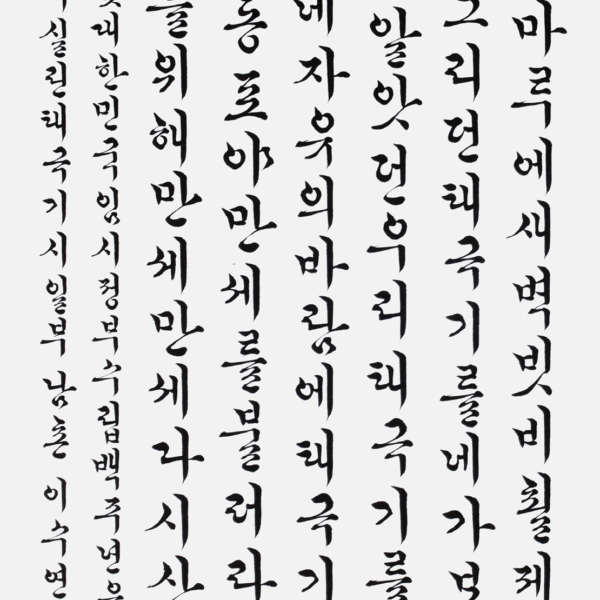 마루에새벽빗비췰제
그리던태극기를네가보
알앗던우리태극기를
네자유의바람에태극기
동포야만세를불러라
를위해만세만세다시산
대한민국임시정부수립백주년을
실린태극기시일부남촌이수연